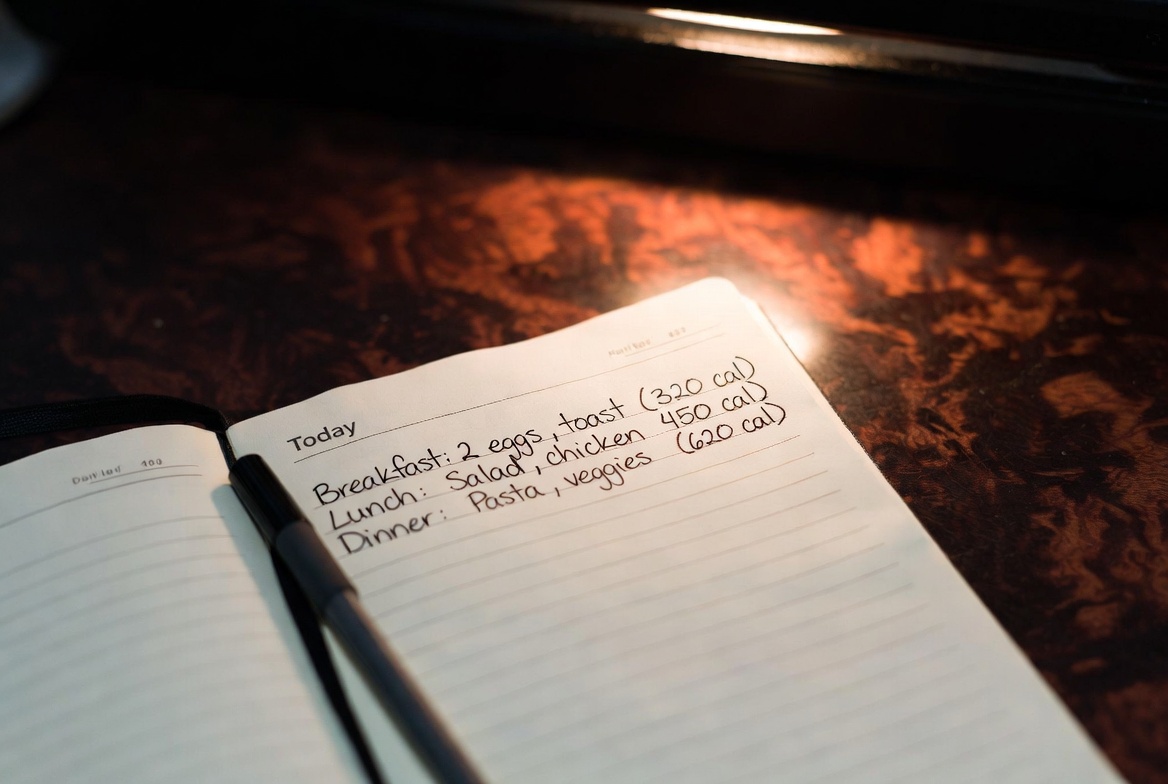 Today
Breakfast: 2 eggs, toast (320 cal)
Lunch: Salad, chicken 450 cal)
Dinner: Pasta, veggies (620 cal)